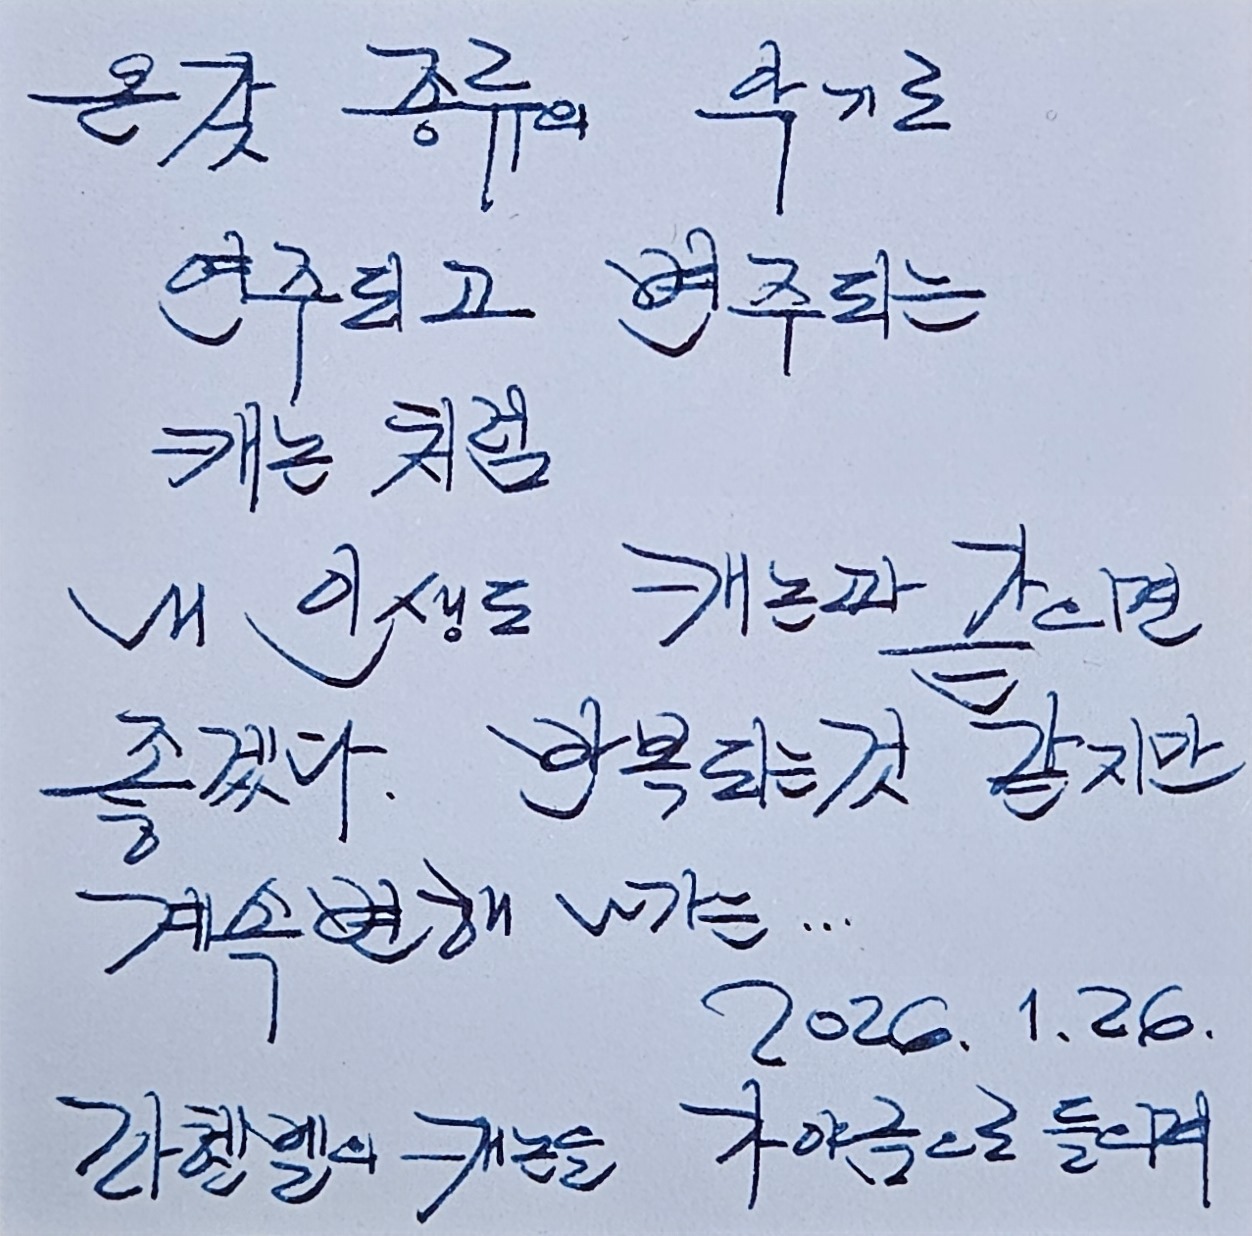 온갖 종류의 악기로
연주되고 변주되는
캐논 처럼
내 인생도 캐논과 같으면
좋겠다. 반복되는것 같지만
계속변해 나가는...
2026. 1. 26.
파헬벨의 캐논을 가야금으로 들으며